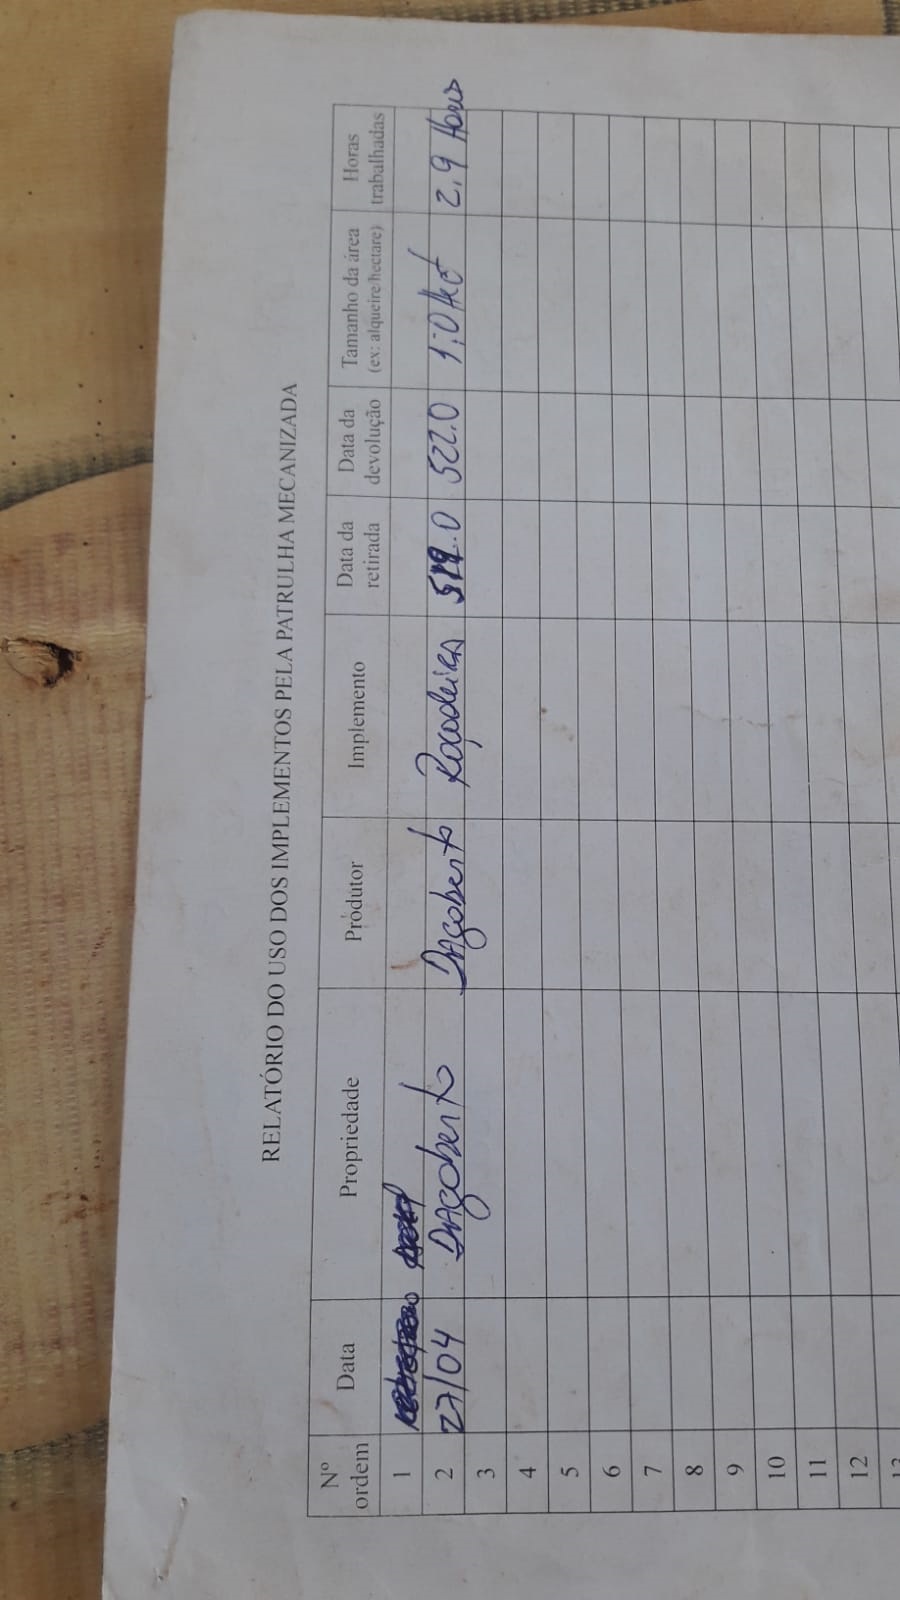 RELATÓRIO DO USO DOS IMPLEMENTOS PELA PATRULHA MECANIZADA
Nº ordem Data Propriedade Produtor Implemento Data da retirada Data da devolução Tamanho da área (ex: alqueire/hectare) Horas trabalhadas
1
2 27/04 Dagoberto Dagoberto Roçadeira 522.0 1,0 2,9 Horas
3
4
5
6
7
8
9
10
11
12
13